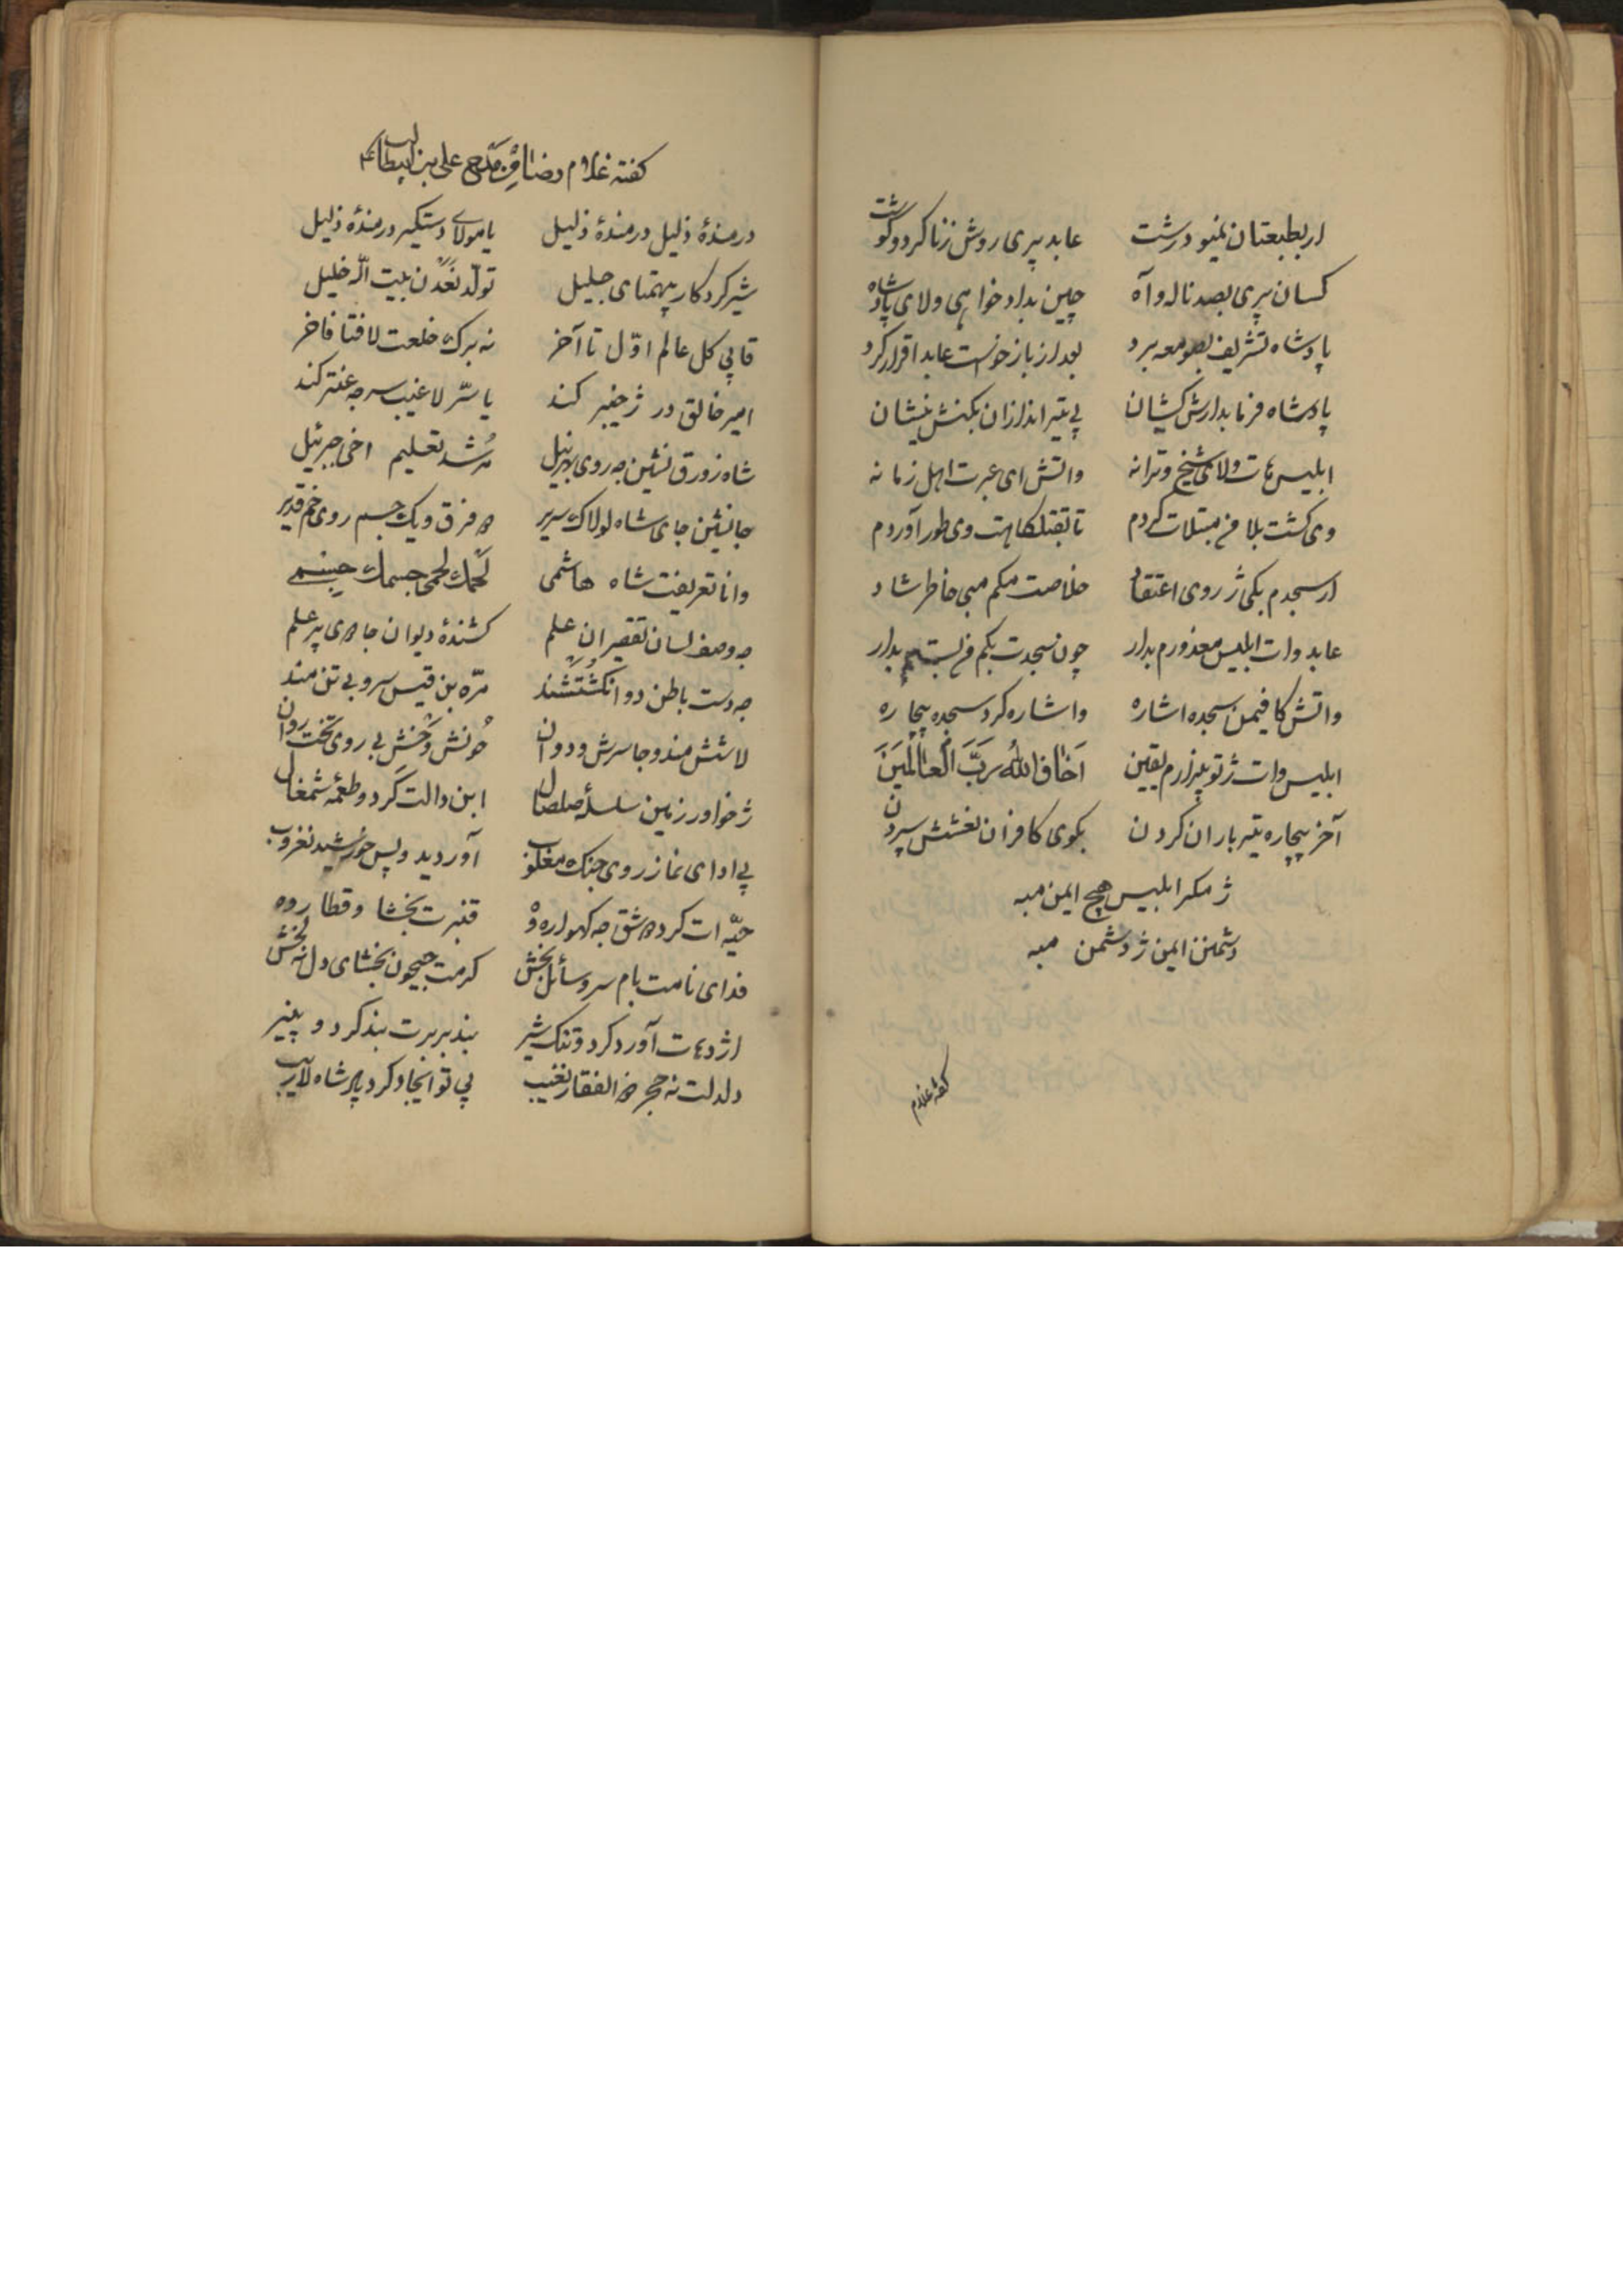 ار بطبعتان نمیو درشت عابد پری روش زنا کرد و گوشت
کسان پری بصد ناله و آه چین بداد خواهی و لای پادشاه
پادشاه تشریف بصومعه برد بعد از بازخواست عابد اقرار کرد
پادشاه فرما بدارش کیشان پی تیر اندازان بکنش نیشان
ابلیس هات و لای شیخ و ترانه واتش ای عبرت اهل زمانه
وی گشت بلا من مبتلات کردم تا بقتلگاهت وی طور آوردم
ار سجدم بکی ژ روی اعتقاد خلاصت میکم مبی خاطر شاد
عابد وات ابلیس معذورم بدار چون سجدت بکم من بستیم بدار
واتش کافیمن سجده اشاره و اشاره کرد سجده بیچاره
ابلیس وات ژ تو بیزارم یقین اَخاف اللهُ رَبَّ الْعالَمینَ
آخر بیچاره تیر باران کردن بکوی کافران نعشش سپردن
ژ مکر ابلیس هیچ ایمن مبه
دشمنن ایمن ژ دشمن مبه
گفته غلام
گفته غلام رضا مدح علی بن ابیطالب
درمندهٔ ذلیل درمندهٔ ذلیل یا مولای دستگیر درمندهٔ ذلیل
شیر کردگار بیهمتای جلیل تولد بیت الله خلیل
قاپی کل عالم اوّل تا آخر نه برگ خلعت لافتا فاخر
امیر خالق در ژ خیبر کند یا سرّ لاغیب سر جه عنتر کند
شاه زورق نشین جه روی بهر نیل مُرشد تعلیم اخی جبرئیل
جانشین جای شاه لولاک سریر دو فرق و یک جسم روی خم قدیر
وانا تعریفت شاه هاشمی لحمک لحمی جسمک جسمی
جه وصف لسان تقصیران علم کشندهٔ دیوان جاهی پر علم
جه دست باطن دو انگشتشند مرّه بن قیس سر و بی تن مند
لاشش مند و جا سرش و دوان خونش وخش بی روی تخت روان
ژ خواور زمین سلسلهٔ صلصال ابن دالت کرد و طعمه شمغال
پی ادای نماز روی جنگ مغلوب آوردید و پس خورشید نغروب
حیّه ات کرد دو شق جه گهواره دو قنبرت بخشا و قطار وه
فدای نامت بام سر و سائل بخش کرمت جیحون بخشای دل نه بخش
اژدهات آورد کرد و تنگ شیر بند بربرت بند کرد و پنیر
دلدلت نه حجر ذو الفقار نغیب پی تو ایجاد کرد پادشاه لاریب